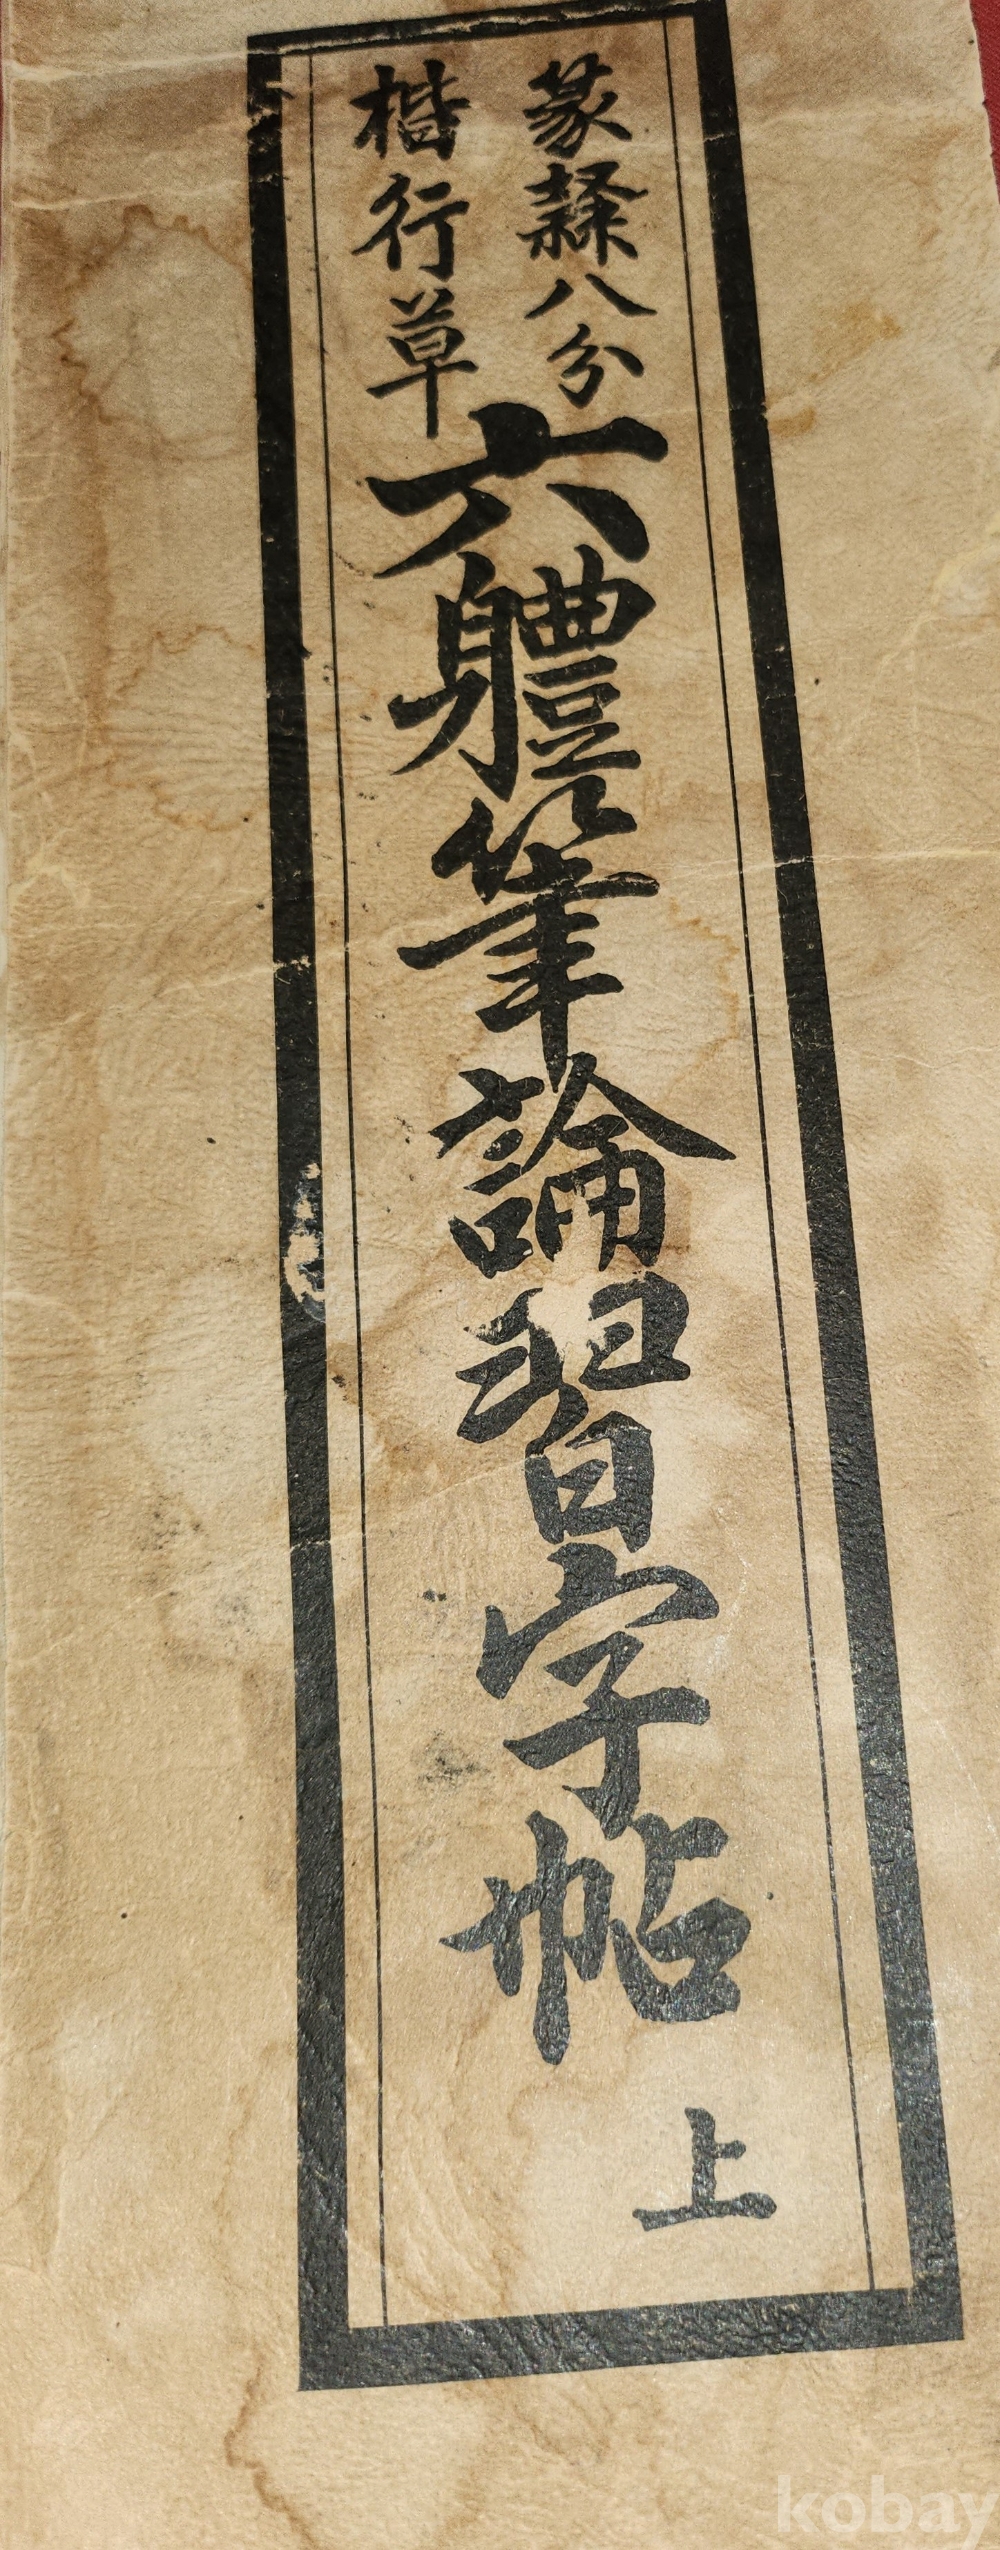 篆隸八分
楷行草
六體筆論習字帖
上
kobay